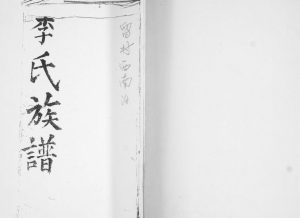 李氏族譜
留村西南沿